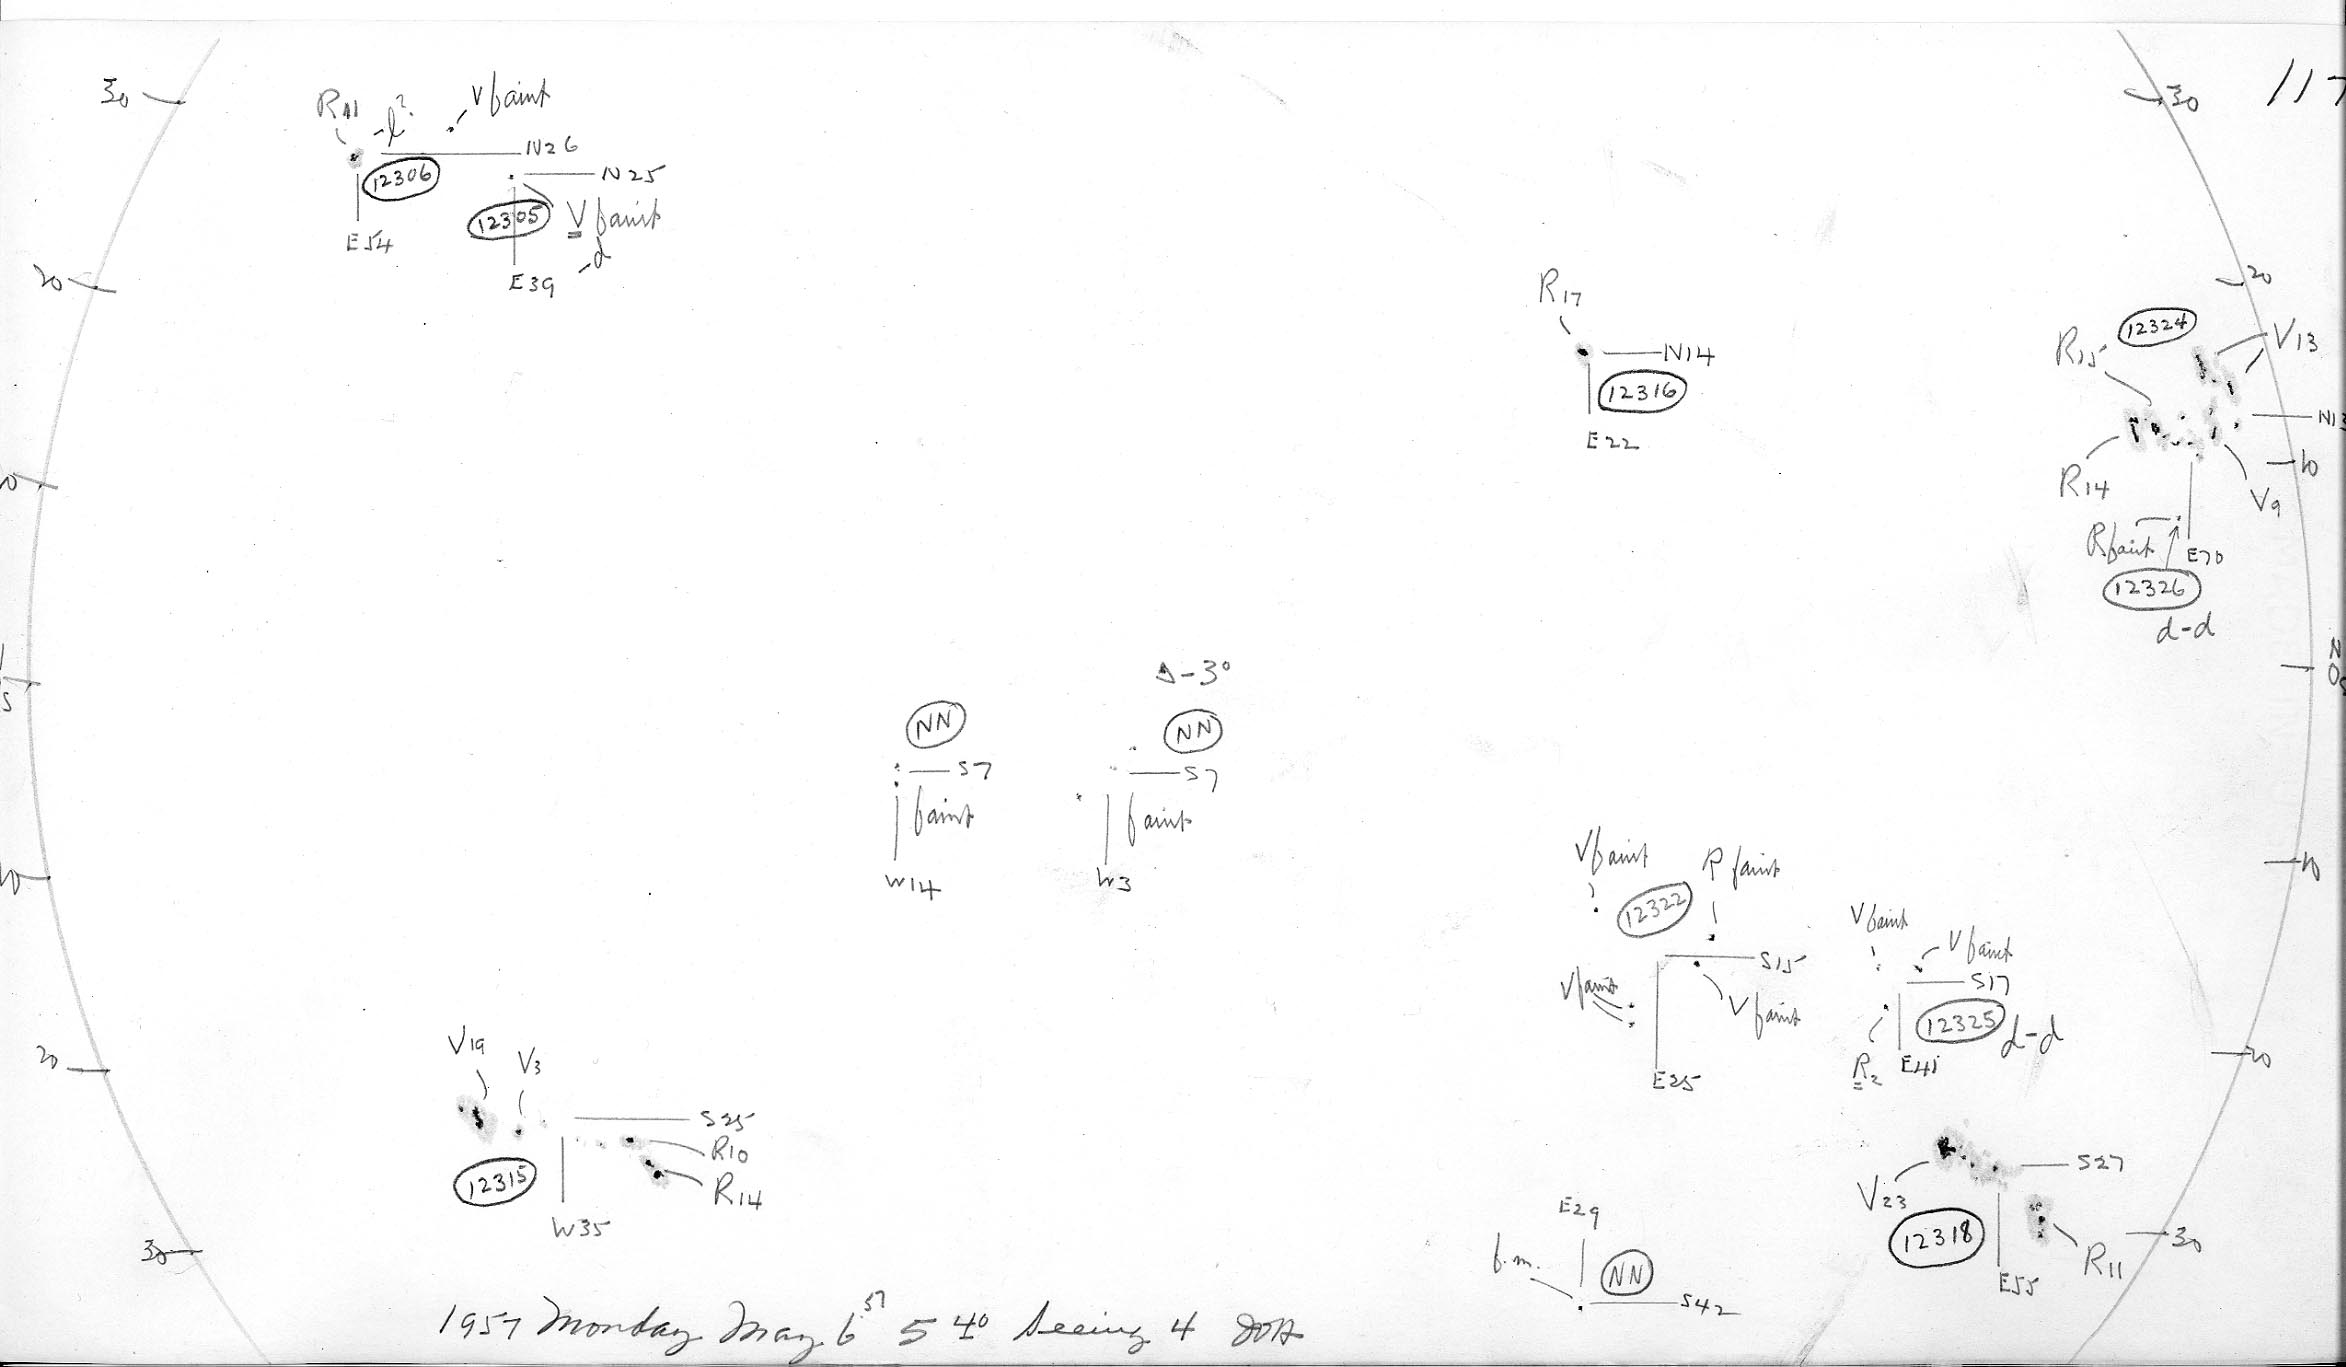 117
30
R11
-l?
V faint
N26
12306
E54
N25
12305
V faint
-d
E39
30
20
20
R17
N14
12316
E22
12324
V13
R15
N13
R14
V9
10
R faint
E70
12326
d-d
N
0
S
Δ-3°
NN
NN
S7
S7
faint
faint
W14
W3
10
V faint
R faint
12322
S15
V faint
V faint
E25
V faint
V faint
S17
12325
d-d
R2
E41
20
20
V19
V3
S25
R10
R14
12315
W35
S27
V23
12318
R11
E55
30
30
E29
f.m.
NN
S42
1957 Monday May 6 57 5 40 Seeing 4